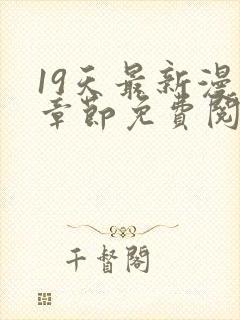 19天最新漫
章節免費閱
千督閣